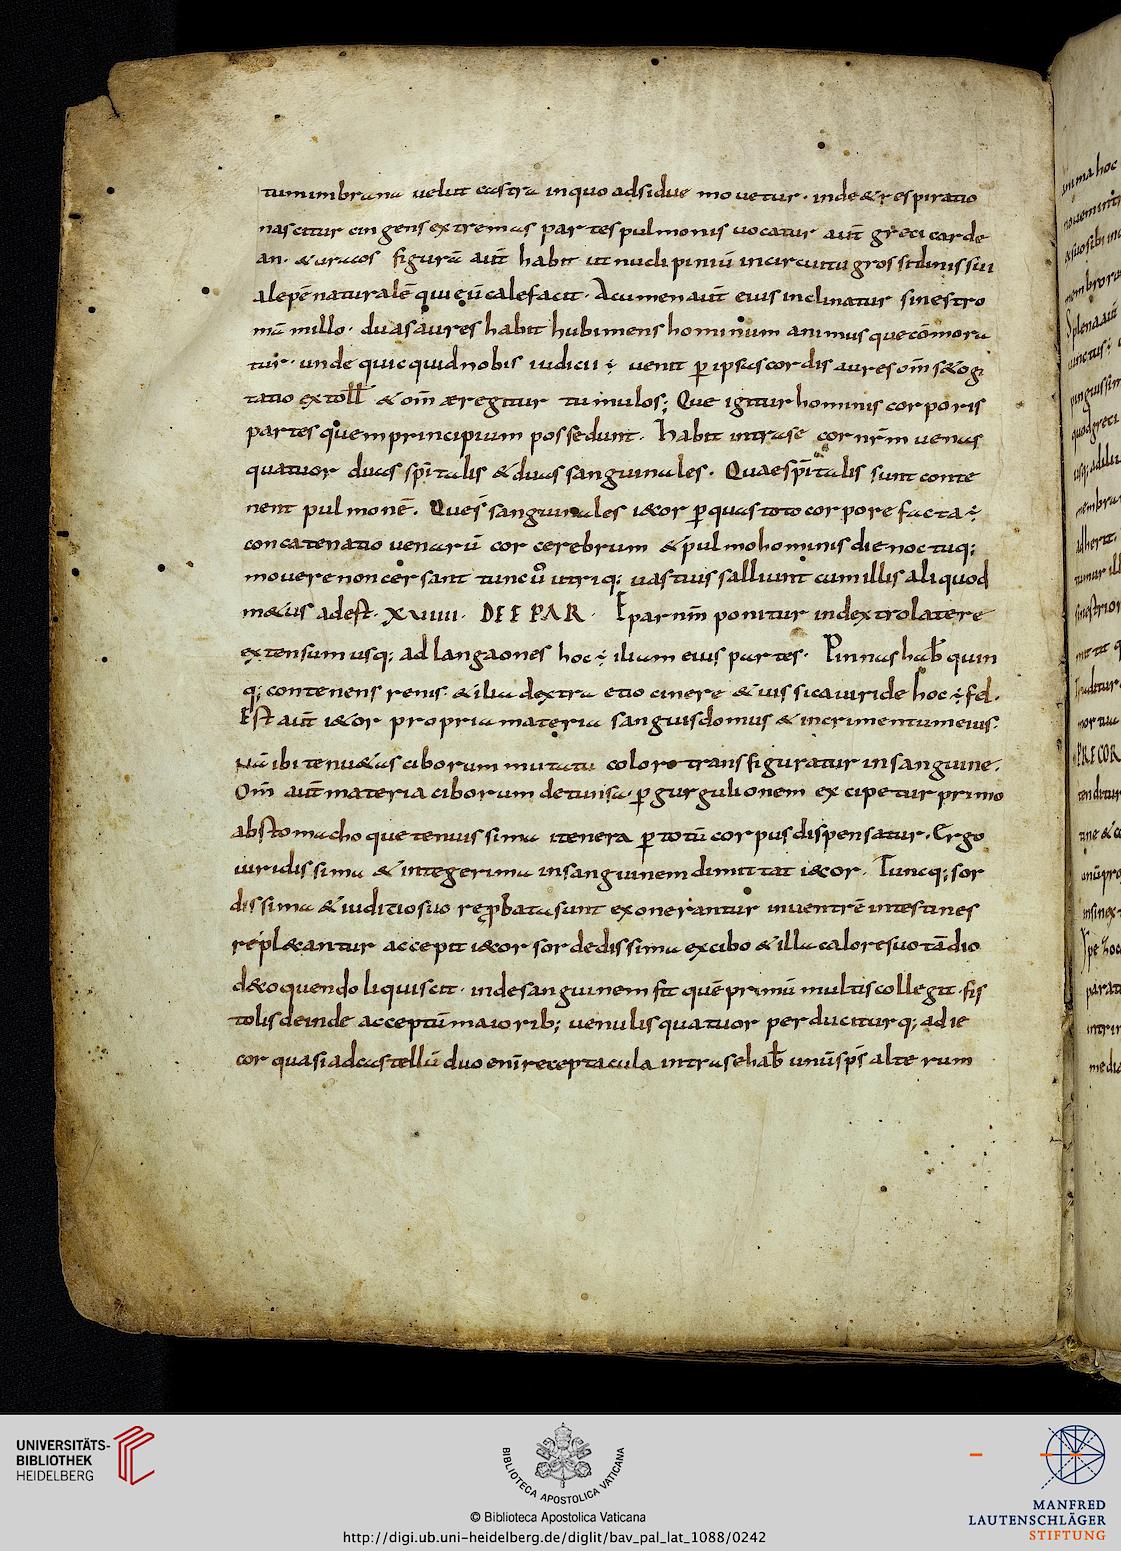 tumimbrana velut castra inquo adsidue movetur · inde & respiratio
nascitur cingens extremas partes pulmonis vocatur aut̄ greci carde
an · & uracos figurā aut̄ habit ut nuclipiniū incircuitu grossitdinissui
alepēnaturalē qui cū calefacit · Acumen aut̄ eius inclinatur sinestro
mā millo · duas aures habit hubi mens hominum animusque cōmora
tur · unde quicquid nobis iudicii ÷ venit p̱ ipsas cordis aures om̄ s&og
tatio extoll̄ & om̄ æregitur tumulos; Que igitur hominis corporis
partes quem principium possedunt · habit intrase cor nr̄m venas
quatuor duas sp̄italis & duas sanguinales · Quae sp̄italis sunt conte
nent pulmonē · Ques̄ sanguinales i&cor p̱ quas toto corpore facta ÷
concatenatio venarū cor cerebrum & pulmo hominis die noctuq;
movere non cersant tunc ū utriq; vastius salliunt cum illis aliquod
m&us adest · XVIIII · DE EPAR · Epar nr̄m ponitur in dextro latere
extensum usq; ad langaones hoc ÷ ilium eius partes · Pinnas hab̄ quin
q; contenens renis & ilia dextra etio cinere & vissica viride hoc ÷ fel ·
Est aut̄ i&cor propria materia sanguis domus & incrimentum eius ·
Nā ibi tenu&as ciborum mutata colore transfiguratur insanguine ·
Om̄ aut̄ materia ciborum detunsa · p̱ gurgulionem excipetur primo
abstomacho que tenuissima itenera p̱ totū corpus dispensatur · Ergo
viridissima & integerima insanguinem dimittat i&cor · Tuncq; sor
dissima & iuditio suo rep̱bata sunt exonerantur inventrē intestines
repl&antur accepit i&cor sordedissima excibo & illa calore suo tādio
d&coquendo liquiscit · inde sanguinem fit quē primū multis collegit · fis
tolis deinde acceptū maiorib; venulis quatuor perduciturq; ad ie
cor quasi ad castellū duo enī receptacula intrase hab̄ unū sp̄s alterum
UNIVERSITÄTS-
BIBLIOTHEK
HEIDELBERG
BIBLIOTECA APOSTOLICA VATICANA
© Biblioteca Apostolica Vaticana
http://digi.ub.uni-heidelberg.de/diglit/bav_pal_lat_1088/0242
MANFRED
LAUTENSCHLÄGER
STIFTUNG